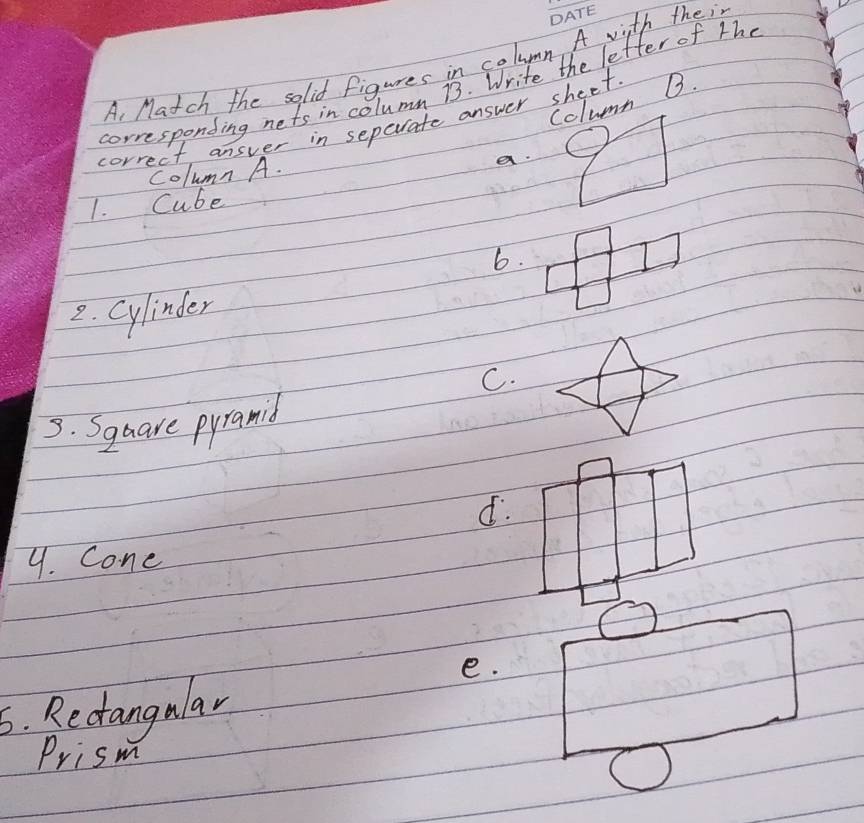 DATE
A. Match the solid figures in column A with their
corresponding nets in column B. Write the letter of the
correct answer in seperate answer sheet.
Column A.
Column B.
1. Cube
a.
2. Cylinder
b.
3. Square pyramid
c.
4. Cone
d.
5. Rectangular
Prism
e.